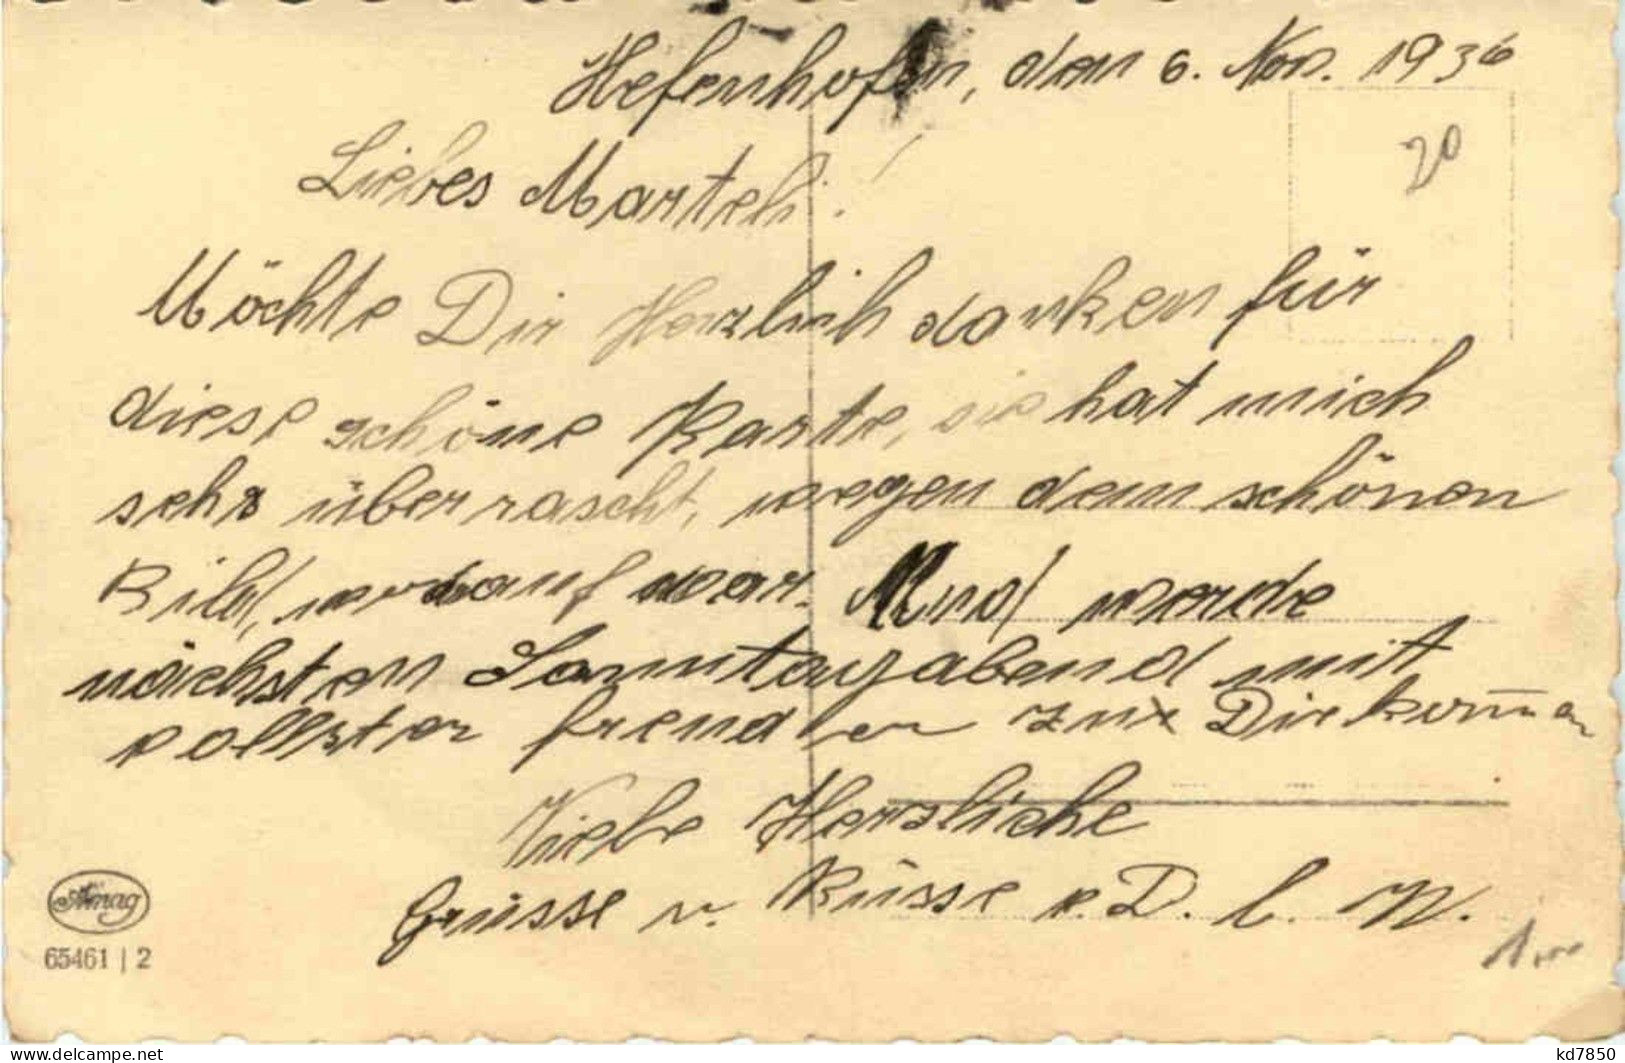 Hefenhofen, den 6. Nov. 1936
20
Liebes Marteli!
Möchte Dir Herzlich danken für
diese schöne Karte, sie hat mich
sehr überrascht, wegen dem schönen
Bild, worauf war. Und werde
nächsten Sonntagabend mit
vollster freuden zu Dir kommen
Viele Herzliche
Grüsse u. Küsse v. D. l. W.
Amag
65461 | 2
delcampe.net
kd7850